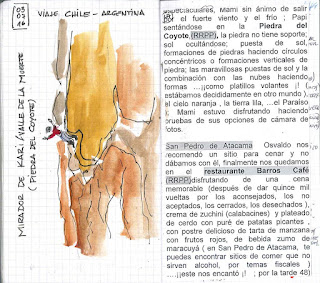 03
02
16
VIAJE CHILE - ARGENTINA
MIRADOR DE KARI/VALLE DE LA MUERTE
(PIEDRA DEL COYOTE)
espectaculares, Mami sin ánimo de salir
por el fuerte viento y el frio ; Papi
sentándose en la Piedra del
Coyote,(RRPP), la piedra no tiene soporte;
sol ocultándose; puesta de sol,
formaciones de piedras haciendo círculos
concéntricos o formaciones verticales de
piedra; las maravillosas puestas de sol y la
combinación con las nubes haciendo
formas ....¡¡como platillos volantes ¡! (
estábamos decididamente en otro mundo ),
el cielo naranja , la tierra lila, ...el Paraíso
); Mami estuvo disfrutando haciendo
pruebas de sus opciones de cámara de
fotos.
San Pedro de Atacama Osvaldo nos
recomendó un sitio para cenar y no
dábamos con él, finalmente nos quedamos
en el restaurante Barros Café
(RRPP)disfrutando de una cena
memorable (después de dar quince mil
vueltas por los aconsejados, los no
aceptados, los cerrados, los desechados ),
crema de zuchini (calabacines) y plateado
de cerdo con puré de patatas picantes ,
con postre delicioso de tarta de manzana
con frutos rojos, de bebida zumo de
maracuyá ( en San Pedro de Atacama, te
puedes encontrar sitios de comer que no
sirven alcohol, por temas fiscales )
....¡¡este nos encantó ¡! ; por la tarde 48)